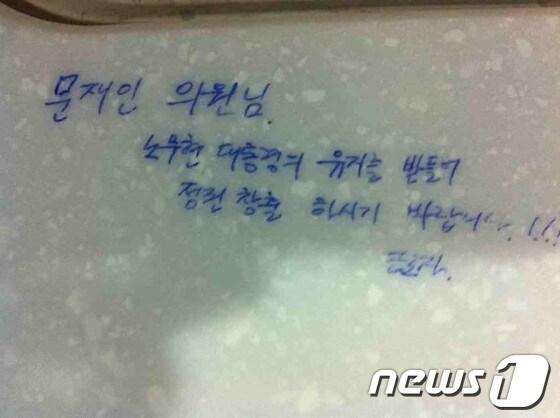 문재인 의원님.
노무현 대통령의 유지를 받들어
정권 창출 하시기 바랍니다.!!!
news1